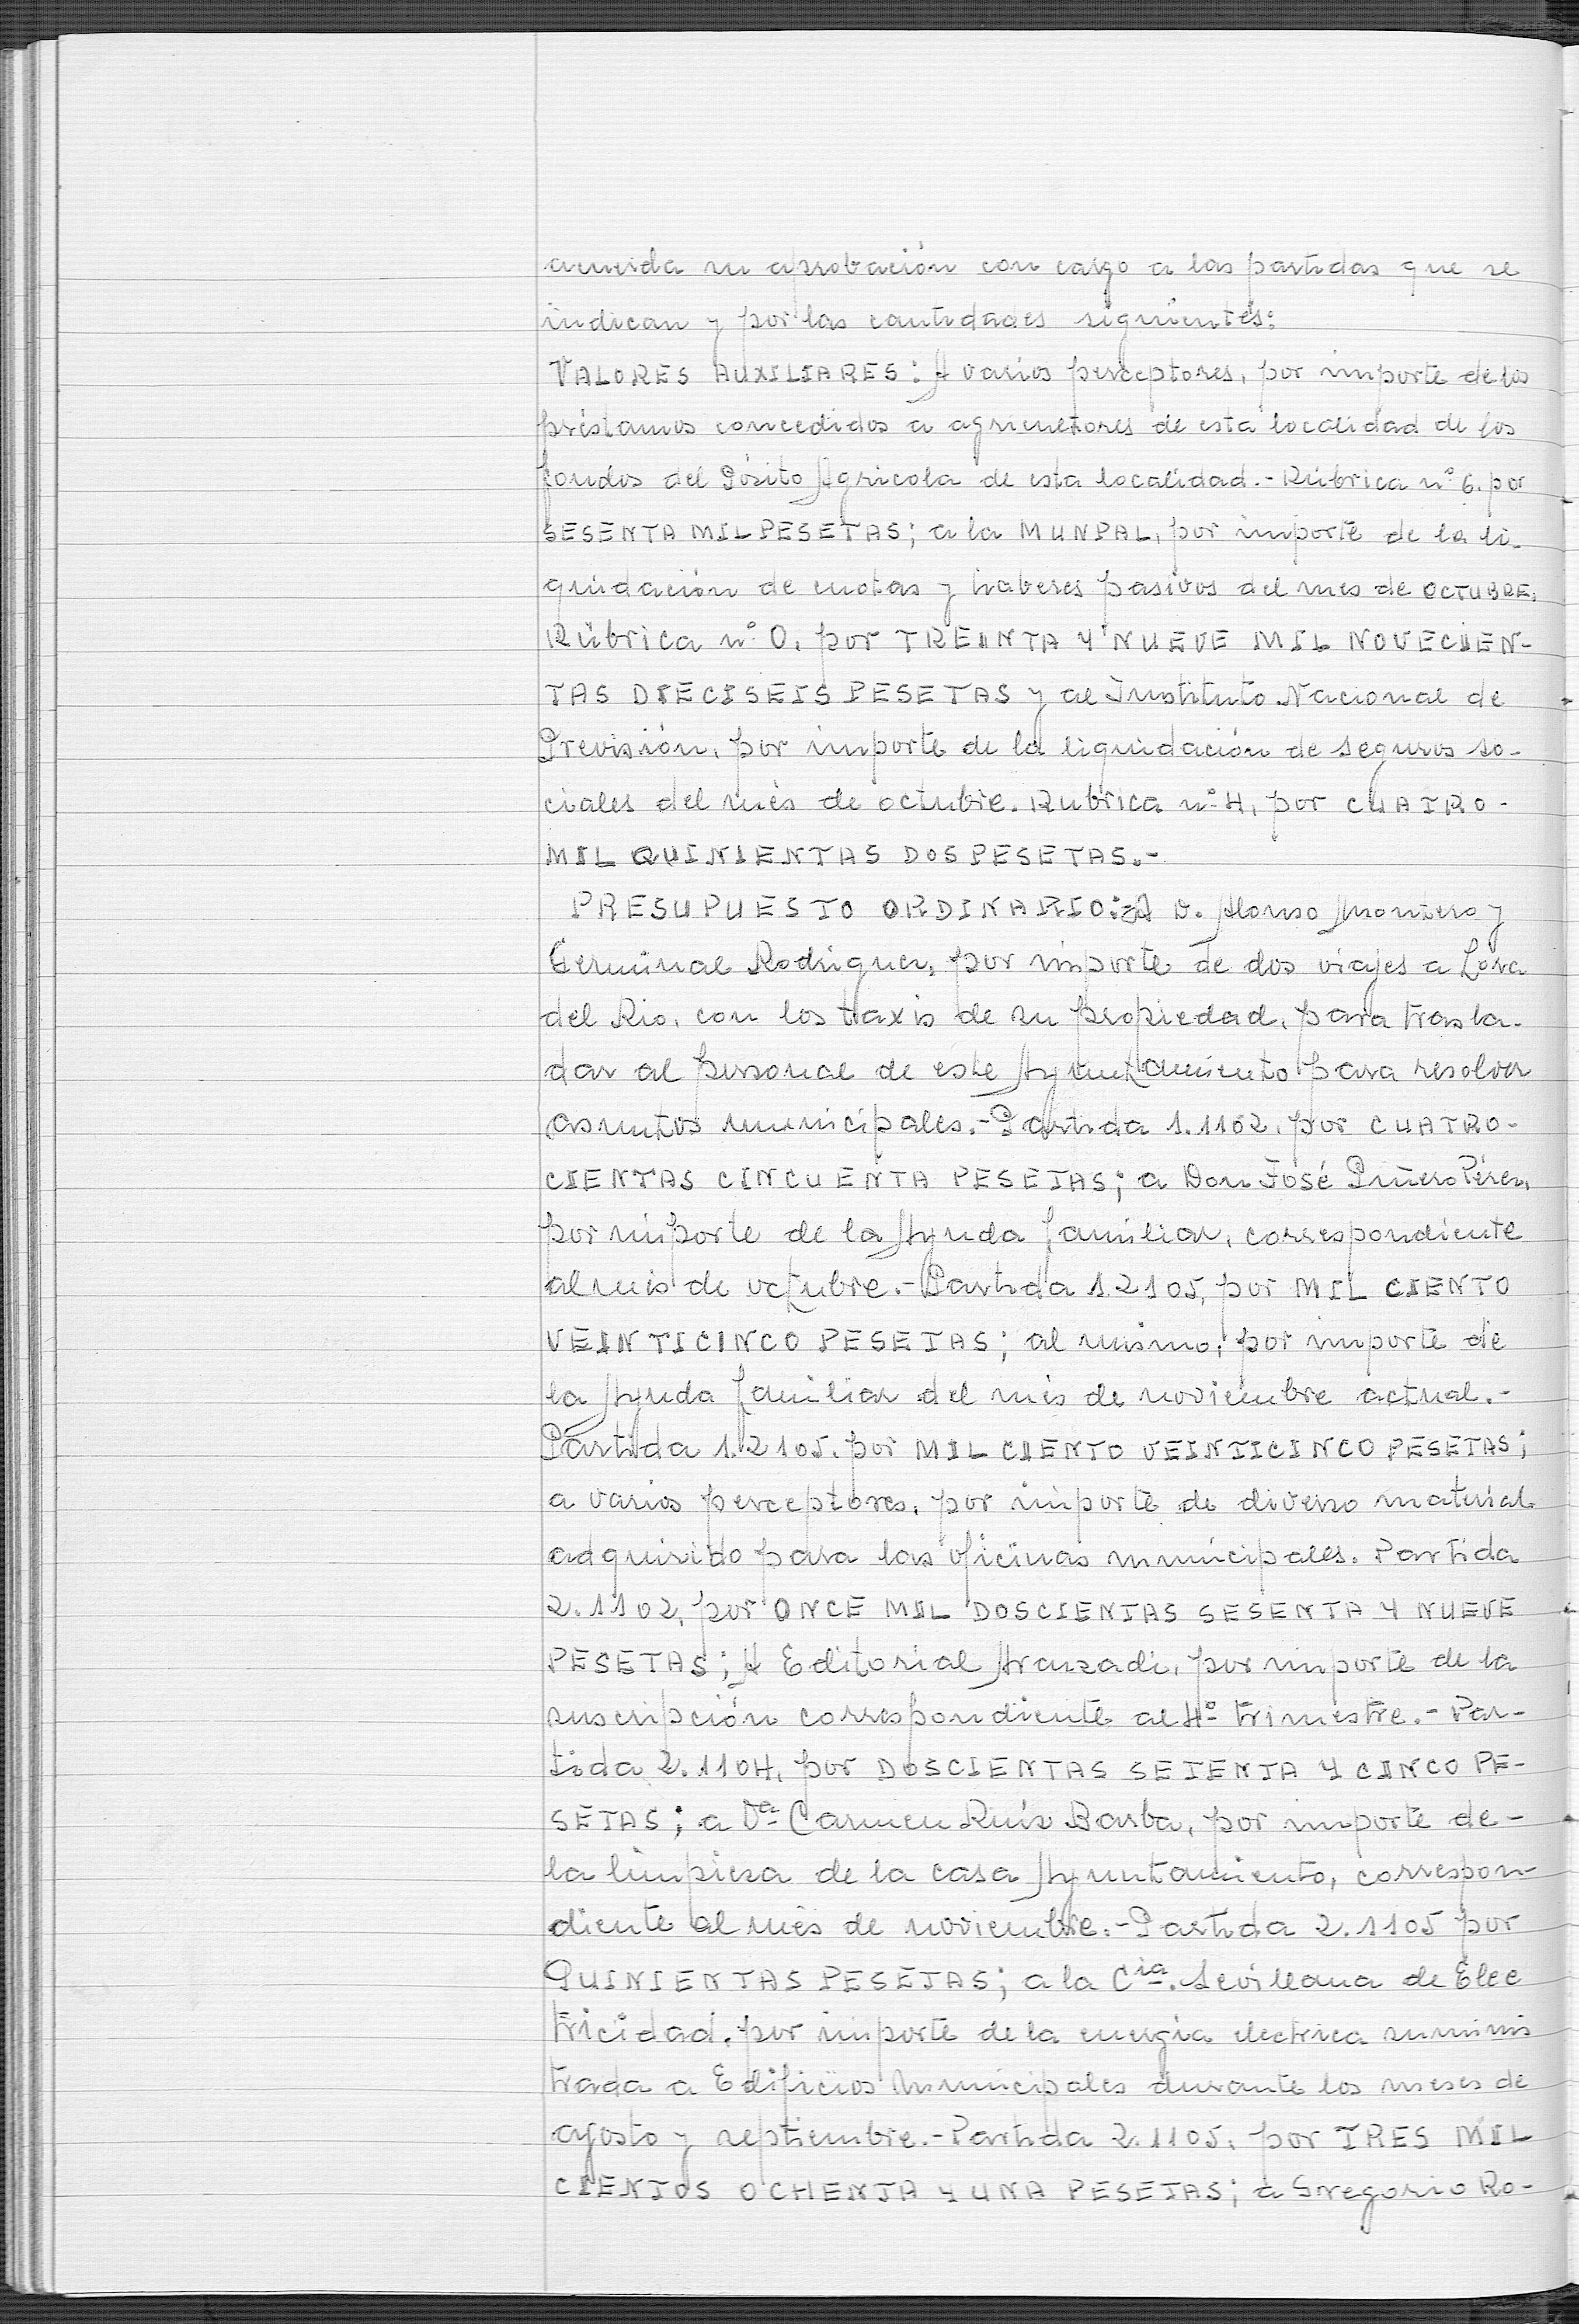 acuerda su aprobación con cargo a las partidas que se
indican y por las cantidades siguientes:
VALORES AUXILIARES: A varios perceptores, por importe de los
préstamos concedidos a agricultores de esta localidad de los
fondos del Pósito Agricola de esta localidad.- Rúbrica nº 6. por
SESENTA MIL PESETAS; a la MUNPAL, por importe de la li-
quidación de cuotas y haberes pasivos del mes de OCTUBRE.
Rúbrica nº 0, por TREINTA Y NUEVE MIL NOVECIEN-
TAS DIECISEIS PESETAS y al Instituto Nacional de
Previsión, por importe de la liquidación de seguros so-
ciales del mes de octubre. Rubrica nº 4, por CUATRO-
MIL QUINIENTAS DOS PESETAS.-
PRESUPUESTO ORDINARIO: A D. Alonso Montero y
Germinal Rodriguez, por importe de dos viajes a Lora
del Rio, con los taxis de su propiedad, para trasla-
dar al personal de este Ayuntamiento para resolver
asuntos municipales.- Partida 1.1102, por CUATRO-
CIENTAS CINCUENTA PESETAS; a Don José Piñero Pérez,
por importe de la Ayuda familiar, correspondiente
al mes de octubre.- Partida 1.2105, por MIL CIENTO
VEINTICINCO PESETAS; al mismo, por importe de
la Ayuda familiar del mes de noviembre actual.-
Partida 1.2105. por MIL CIENTO VEINTICINCO PESETAS;
a varios perceptores, por importe de diverso material
adquirido para las oficinas municipales. Partida
2.1102, por ONCE MIL DOSCIENTAS SESENTA Y NUEVE
PESETAS; A Editorial Aranzadi, por importe de la
suscripción correspondiente al 4º trimestre.- Par-
tida 2.1104, por DOSCIENTAS SETENTA Y CINCO PE-
SETAS; a Dª Carmen Ruiz Barba, por importe de-
la limpieza de la casa Ayuntamiento, correspon-
diente al mes de noviembre.- Partida 2.1105 por
QUINIENTAS PESETAS; a la Cia. Sevillana de Elec
tricidad, por importe de la energia electrica suminis
trada a Edificios Municipales durante los meses de
agosto y septiembre.- Partida 2.1105, por TRES MIL
CIENTOS OCHENTA Y UNA PESETAS; a Gregorio Ro-